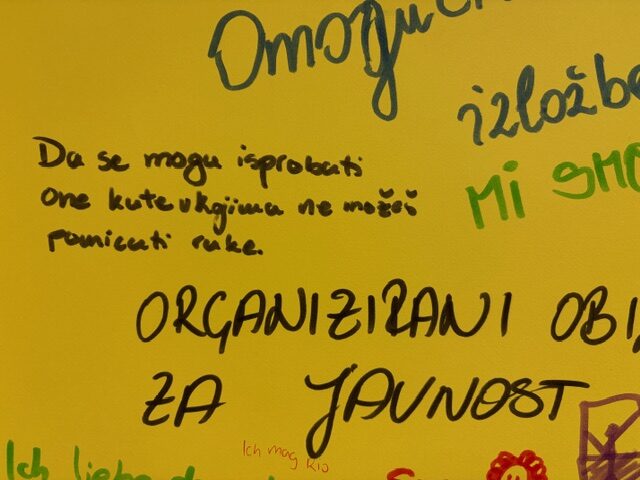 izložbe
Da se mogu isprobati
one kute u kojima ne možeš
pomicati ruke.
Mi smo
ORGANIZIRANI
ZA JAVNOST
Ich mag Rio
Ich liebe